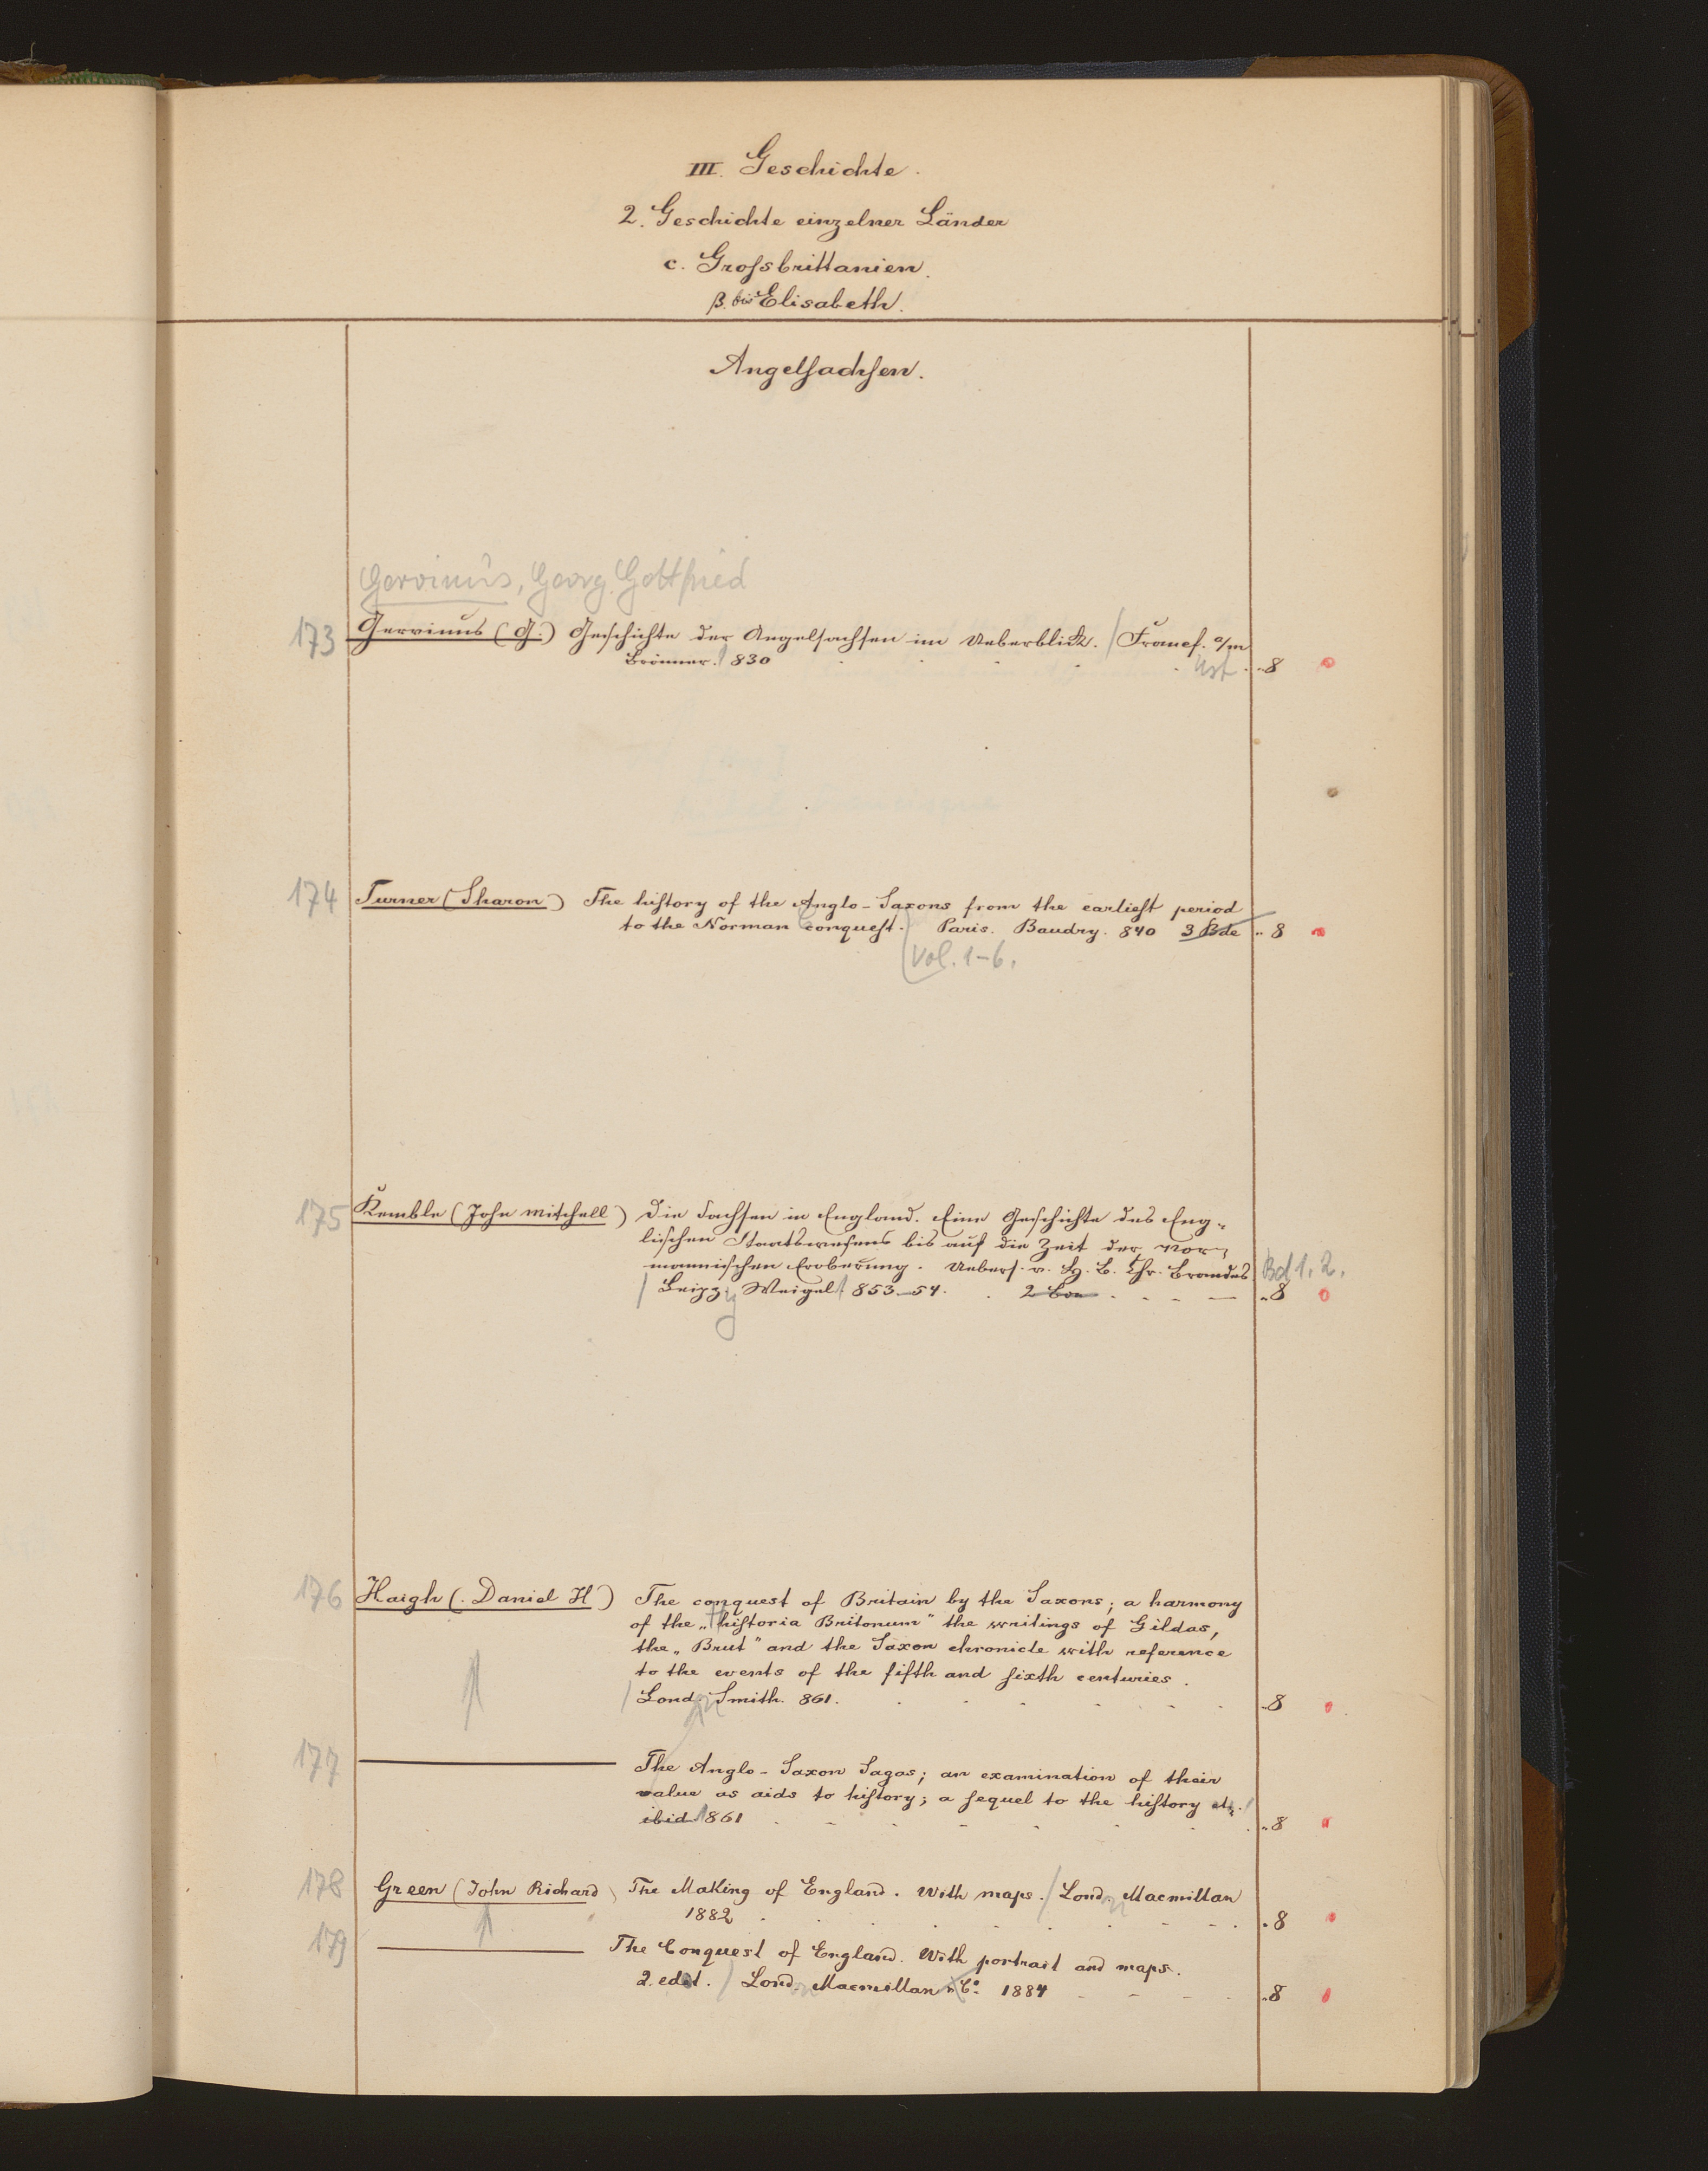 III. Geschichte.
2. Geschichte einzelner Länder
c. Grossbrittanien.
β. bis Elisabeth.
Angelsachsen.
Gervinus, Georg Gottfried
173 Gervinus (G.) Geschichte der Angelsachsen im Ueberblick. / Francf. a/m
Brönner. 830 .. 8
174 Turner (Sharon) The history of the Anglo-Saxons from the earliest period
to the Norman conquest. Paris. Baudry. 840 3 Bde .. 8
Vol. 1-6.
175 Kemble (John Mitchell) Die Sachsen in England. Eine Geschichte des Eng-
lischen Staatswesens bis auf die Zeit der Nor-
mannischen Eroberung. Uebers. v. H. B. Chr. Brandes Bd 1. 2.
/ Leipzig Weigel / 853-54. 2 Bde .. 8
176 Haigh (Daniel H) The conquest of Britain by the Saxons; a harmony
of the „Historia Britonum" the writings of Gildas,
the „Brut" and the Saxon chronicle with reference
to the events of the fifth and sixth centuries.
/ Lond. Smith. 861. .. 8
177 ——— The Anglo-Saxon Sagas; an examination of their
value as aids to history; a sequel to the history etc.
ibid. 1861 .. 8
178 Green (John Richard) The Making of England. With maps. / Lond. Macmillan
1882 . 8
179 ——— The Conquest of England. With portrait and maps.
2. edit. / Lond. Macmillan & Co. 1884 .. 8